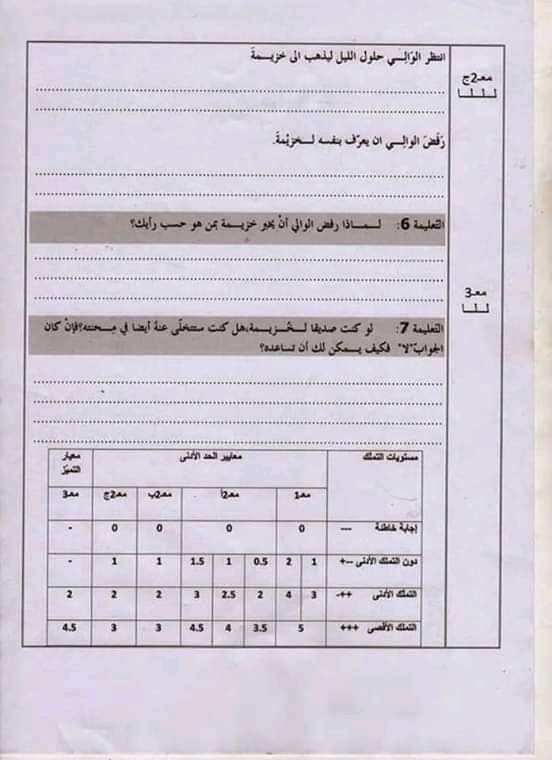 معـ2ج
انتظر الوَالِـي حلول الليل ليذهب الى خزيـــمةَ
رَفَضَ الوالِـي ان يعرّف بنفسه لـخزيْمةَ.
التعليمة 6: لـمـــاذا رفض الوالي أنْ يخبر خزيـــمة بمن هو حسب رأيك؟
معـ3
التعليمة 7: لو كنت صديقا لـخُـزيـمة،هل كنت ستتخلّى عنهُ أيضا في مِـحنته؟فإنْ كان
الجوابُ"لا" فكيف يـمكن لك أن تساعده؟
مستويات التملك معايير الحد الأدنى معيار التميّز
معـ1 معـ2أ معـ2ب معـ2ج معـ3
إجابة خاطئة --- 0 0 0 0 -
دون التملك الأدنى --+ 1 2 0.5 1 1.5 1 1 -
التملك الأدنى ++- 3 4 2 2.5 3 2 2 2
التملك الأقصى +++ 5 3.5 4 4.5 3 3 4.5